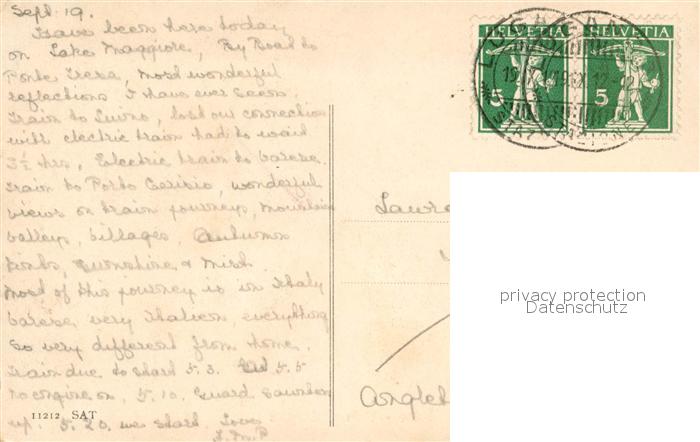 Sept. 19.
Have been here today
on Lake Maggiore, By Boat to
Ponte Tresa, most wonderful
reflections I have ever seen.
Train to Luino, lost our connection
with electric train had to wait
3½ hrs, Electric train to Varese.
Train to Porto Ceresio, wonderful
views on train journeys, mountains
valleys, villages, Autumn
tints, Sunshine & Mist.
Most of this journey is in Italy
Varese very Italian, everything
so very different from home.
Train due to start 5.3. 5.5
no engine on, 5.10. Guard saunters
up. 5.20. we start. Love
11212 SAT
HELVETIA HELVETIA
5 5
LUGANO
Lawre
Angle
privacy protection
Datenschutz